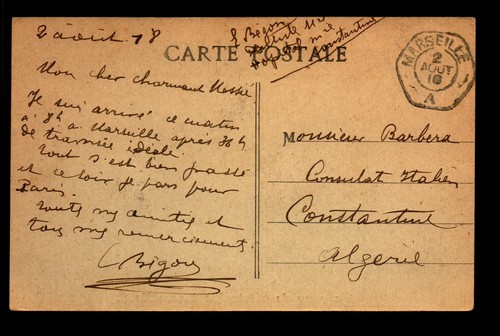 2 août 18
CARTE POSTALE
Bigou
Hopital mre
Constantine
MARSEILLE
2
AOUT
18
A
Mon cher charmant
Je suis arrivé ce matin
à 9h à Marseille après 36 h
de traversée idéale.
Tout s'est bien passé
et ce soir je pars pour
Paris.
Toutes mes amitiés et
tous mes remerciements.
Bigou
Monsieur Barbera
Consulat Italien
Constantine
Algérie